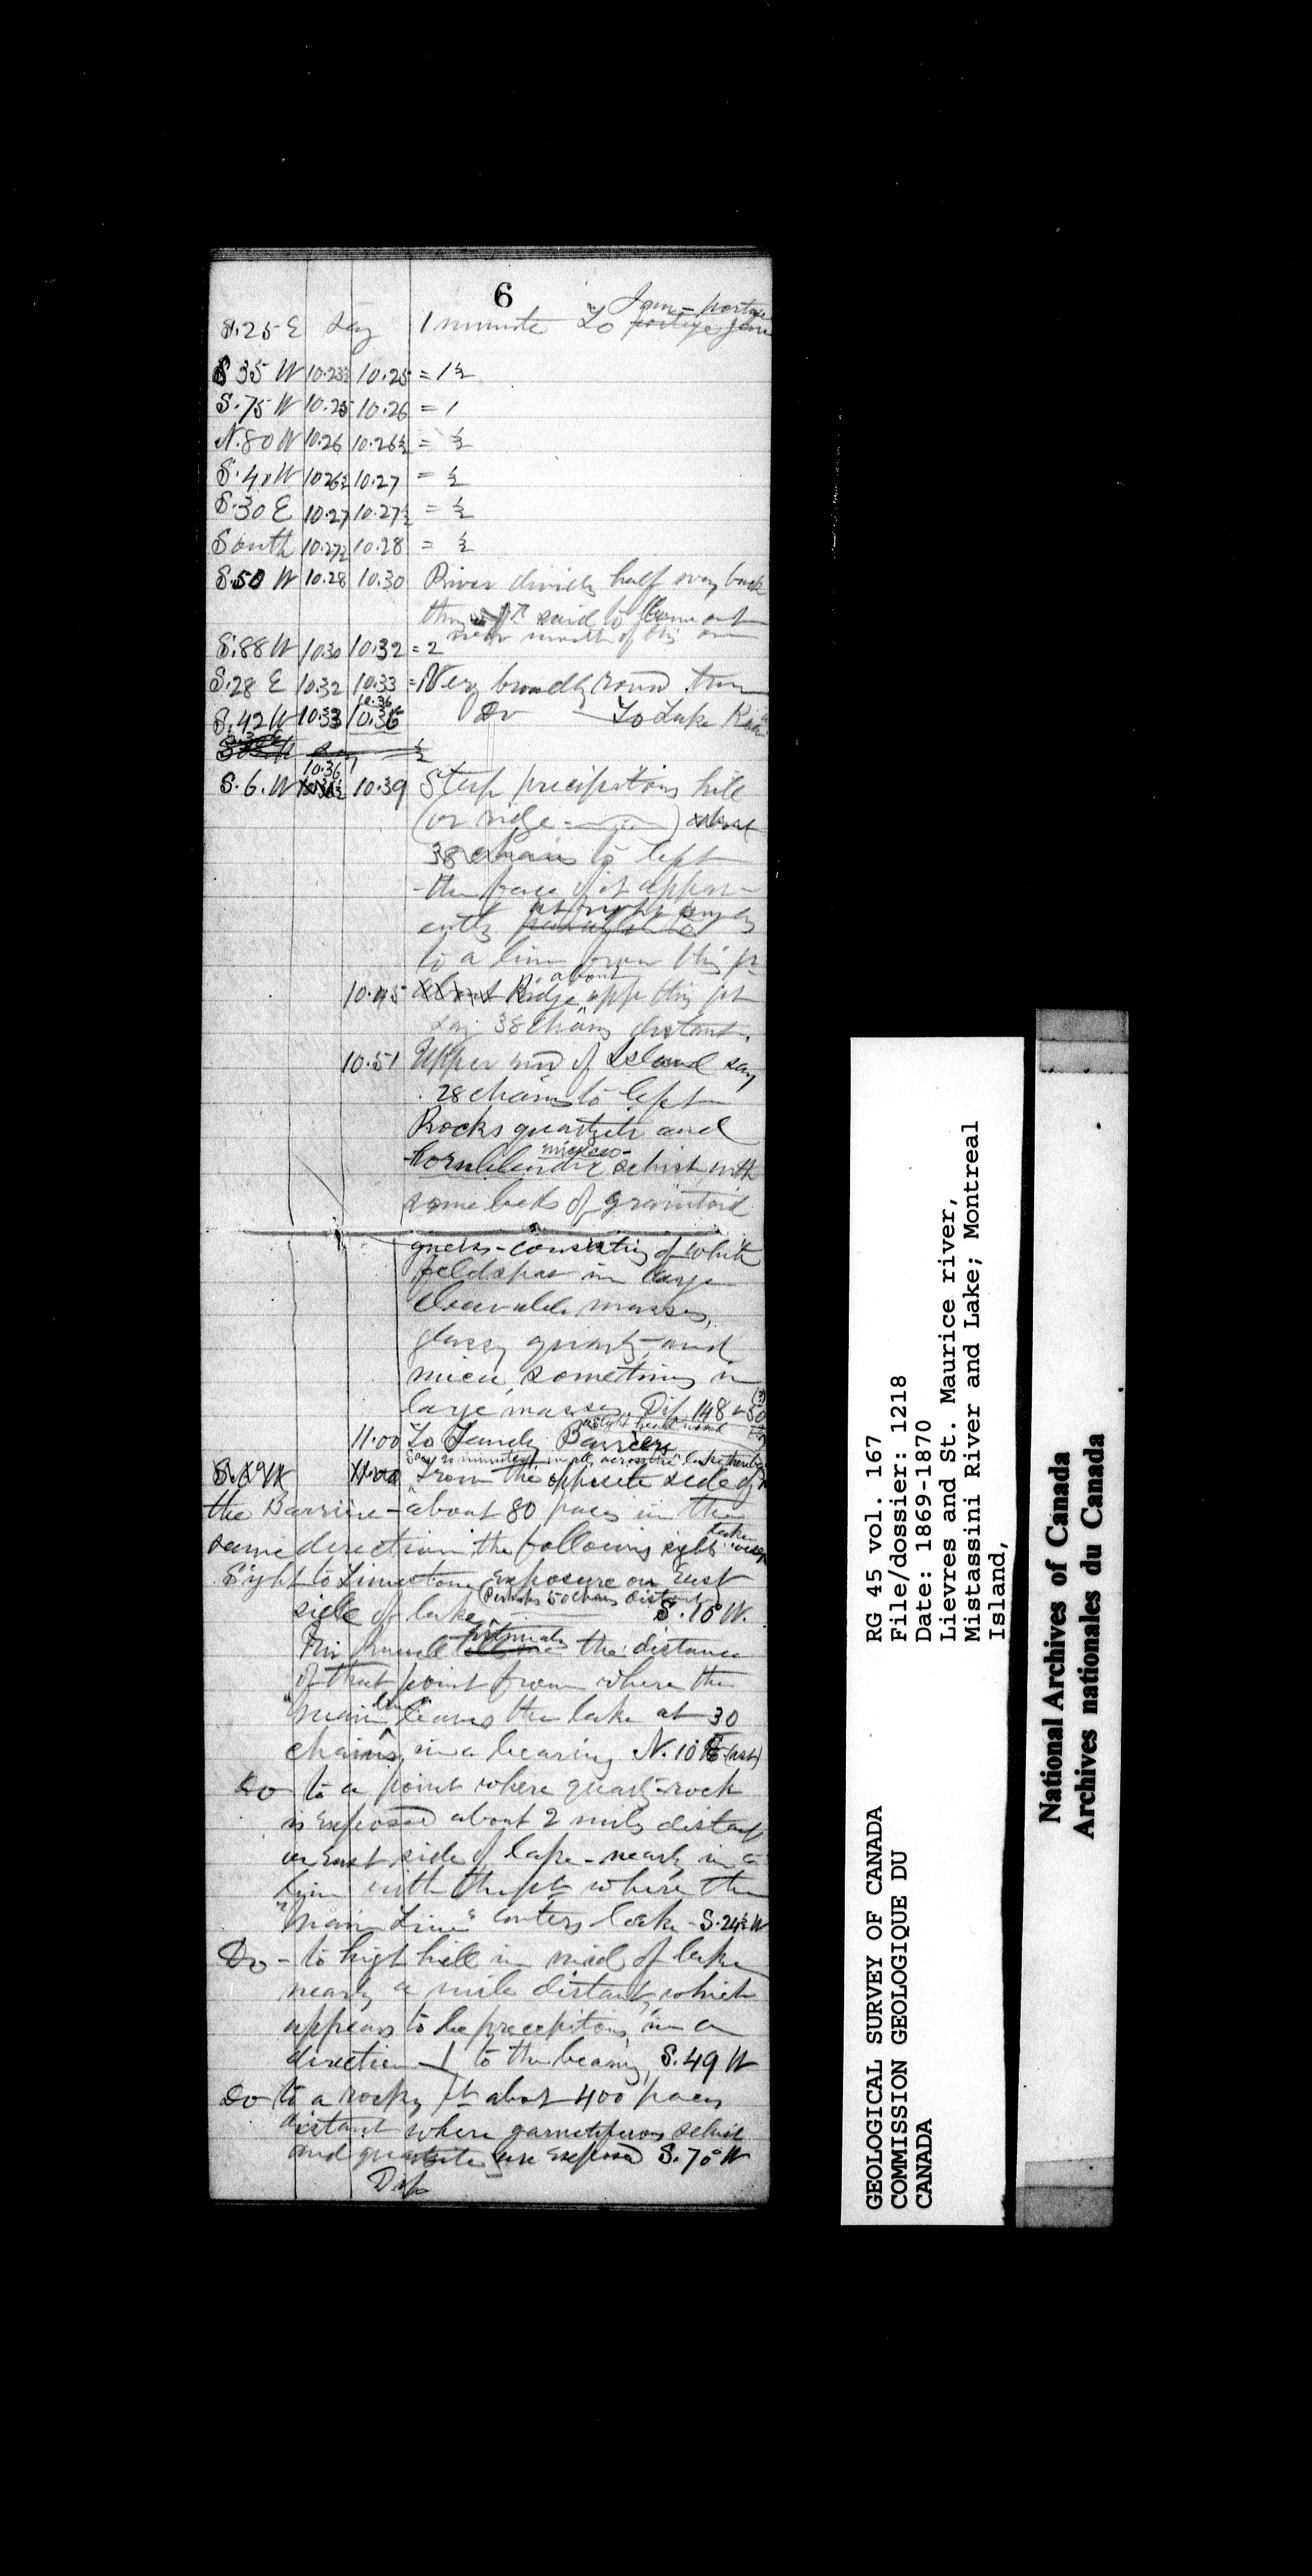 6
S. 25 E say 1 minute To Jam - portage
S 35 W 10.23½ 10.25 = 1½
S. 75 W 10.25 10.26 = 1
N. 80 W 10.26 10.26½ = ½
S. 40 W 10.26½ 10.27 = ½
S. 30 E 10.27 10.27½ = ½
South 10.27½ 10.28 = ½
S. 50 W 10.28 10.30 River divides half way back
said to come out
near mouth of this one
S. 88 W 10.30 10.32 = 2
S. 28 E 10.32 10.33 = Very broadly round turn
10.36
S. 42 W 10.33 10.35 Do To Lake
½
10.36
S. 6. W 10.39 Steep precipitous hill
(or ridge ) about
38 chains to left
- the face of it appar-
ently at right angles
to a line from this pt
10.45 Ridge about opp this pt
say 38 chains distant.
10.51 Upper end of Island say
28 chains to left
Rocks quartzite and
micaceo-
hornblendic schist with
some beds of granitoid
gneiss - consisting of white
feldspar in large
cleavable masses,
glassy quartz - and
mica, sometimes in
large masses, Dip 148 < 50
11.00 To Sandy Barriere
11.00 From the opposite side of
the Barriere - about 80 paces in the
same direction the following sights taken
Sight to Limestone exposure on East
(Perhaps 50 chains distant)
side of lake S. 10° W.
Mr estimates the distance
of that point from where the
"main line" leaves the lake at 30
chains, in a bearing N. 10 E (ast)
Do to a point where quartz-rock
is exposed about 2 miles distant
on East side of lake - nearly in a
line with the pt where the
"Main Line" enters lake - S. 24½ W
Do - to high hill in mid of lake
nearly a mile distant, which
appears to be precipitous in a
direction ⊥ to the bearing, S. 49 W
Do to a rocky pt about 400 paces
distant where garnetiferous schist
and quartzite are exposed S. 70° W
Dip
GEOLOGICAL SURVEY OF CANADA
COMMISSION GEOLOGIQUE DU
CANADA
RG 45 vol. 167
File/dossier: 1218
Date: 1869-1870
Lievres and St. Maurice river,
Mistassini River and Lake; Montreal
Island,
National Archives of Canada
Archives nationales du Canada